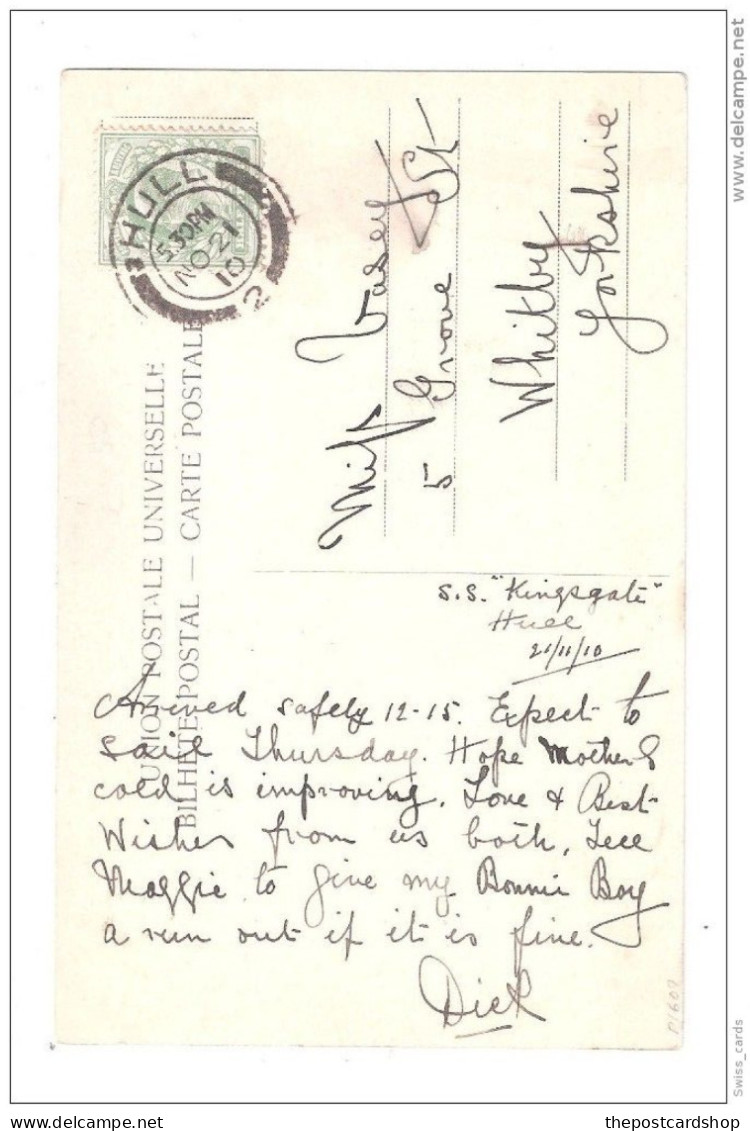 HULL
5.30PM
NO 21
10
2
UNION POSTALE UNIVERSELLE
BILHETE POSTAL — CARTE POSTALE
Miss Vasey
5 Grove St
Whitby
Yorkshire
S.S. "Kingsgate"
Hull
21/11/10
Arrived safely 12-15. Expect to
sail Thursday. Hope Mothers
cold is improving. Love & Best
Wishes from us both. Tell
Maggie to give my Bonnie Boy
a run out if it is fine.
Dick
P1609
www.delcampe.net
Swiss_cards
thepostcardshop